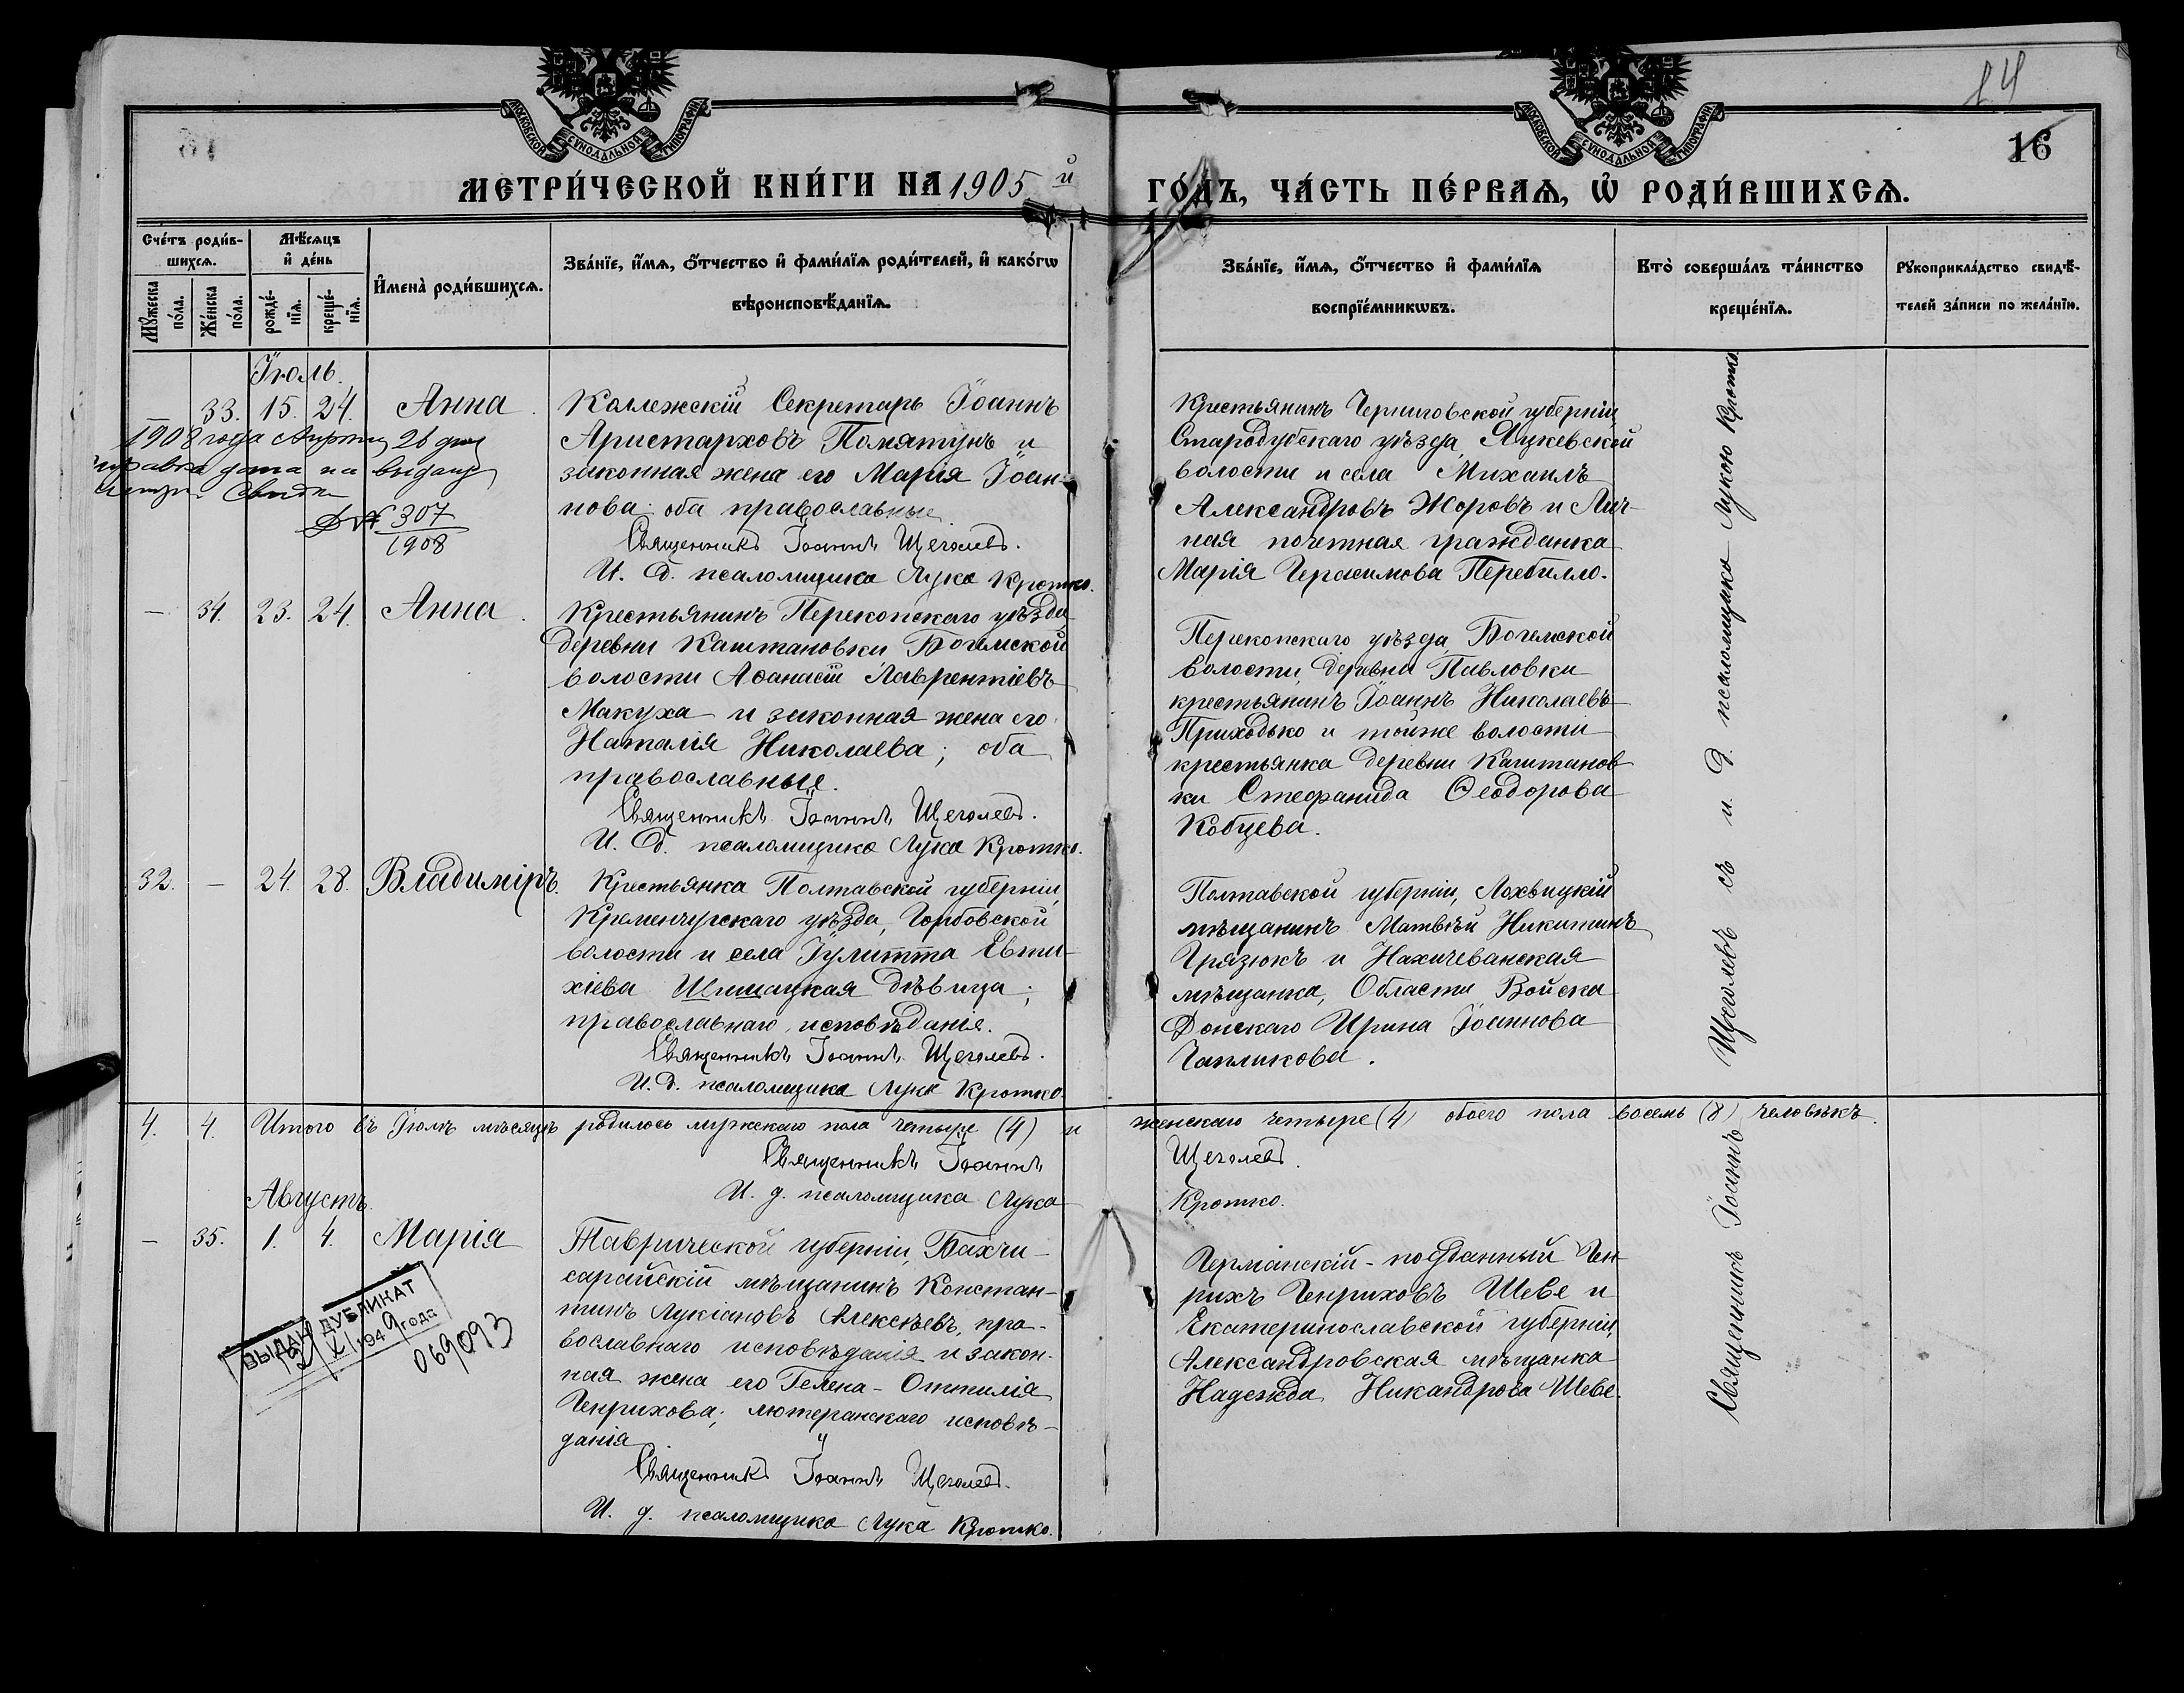 МОСКОВСКОЙ СѴНОДАЛЬНОЙ ТИПОГРАФІИ
МОСКОВСКОЙ СѴНОДАЛЬНОЙ ТИПОГРАФІИ
14
16
МЕТРИ́ЧЕСКОЙ КНИ́ГИ НА 1905 й ГО́ДЪ, ЧА́СТЬ ПЕ́РВАѦ, Ѡ҆ РОДИ́ВШИХСѦ.
Сче́тъ роди́в-
шихсѧ.
Мꙋ́жеска по́ла.
Же́нска по́ла.
Мѣ́сѧцъ
и҆ де́нь
рожде́-
нїѧ.
креще́-
нїѧ.
И҆мена̀ роди́вшихсѧ.
Зва́нїе, и҆́мѧ, ѻ҆́тчество и҆ фами́лїѧ роди́телей, и҆ како́гѡ
вѣроисповѣ́данїѧ.
Зва́нїе, и҆́мѧ, ѻ҆́тчество и҆ фами́лїѧ
воспрїе́мникѡвъ.
Кто̀ соверша́лъ та́инство
креще́нїѧ.
Рꙋкоприкла́дство свидѣ́-
телей за́писи по жела́нїю.
Іюль.
— 33. 15. 24. Анна.
Коллежскій Секретарь Іоаннъ
Аристарховъ Помятунъ и
законная жена его Марія Іоан-
нова; оба православные.
Священникъ Іоаннъ Щеголевъ.
И. д. псаломщика Лука Кротко.
1908 года 26 дня
справка дана на выдачу
№ 307
1908
Крестьянинъ Черниговской губерніи,
Стародубскаго уѣзда, Яцкевской
волости и села Михаилъ
Александровъ Жоровъ и Лич-
ная почетная гражданка
Марія Герасимова Перебилло.
— 34. 23. 24. Анна.
Крестьянинъ Перекопскаго уѣзда
деревни Каштановки Богемской
волости Аѳанасій Лаврентіевъ
Макуха и законная жена его
Наталія Николаева; оба
православные.
Священникъ Іоаннъ Щеголевъ.
И. д. псаломщика Лука Кротко.
Перекопскаго уѣзда, Богемской
волости, деревни Павловки
крестьянинъ Іоаннъ Николаевъ
Приходько и тойже волости
крестьянка деревни Каштанов
ки Стефанида Ѳеодорова
Кобцева.
32. — 24. 28. Владиміръ.
Крестьянка Полтавской губерніи,
Кременчугскаго уѣзда, Горбовской
волости и села Іулитта Евти-
хіева Шишацкая дѣвица;
православнаго исповѣданія.
Священникъ Іоаннъ Щеголевъ.
И. д. псаломщика Лука Кротко.
Полтавской губерніи, Лохвицкій
мѣщанинъ Матвѣй Никитинъ
Грязюкъ и Нахичеванская
мѣщанка, Области Войска
Донскаго Ирина Іоаннова
Чапликова.
4. 4. Итого въ Іюлѣ мѣсяцѣ родилось мужскаго пола четыре (4) и женскаго четыре (4) обоего пола восемь (8) человѣкъ.
Священникъ Іоаннъ Щеголевъ.
И. д. псаломщика Лука Кротко.
Августъ.
— 35. 1. 4. Марія
Таврической губерніи, Бахчи-
сарайскій мѣщанинъ Констан-
тинъ Лукіановъ Алексѣевъ, пра-
вославнаго исповѣданія и закон-
ная жена его Гелена-Оттилія
Генрихова; лютеранскаго исповѣ-
данія.
Священникъ Іоаннъ Щеголевъ.
И. д. псаломщика Лука Кротко.
Германскій-подданный Ген-
рихъ Генриховъ Шеве и
Екатеринославской губерніи,
Александровская мѣщанка
Надежда Никандрова Шеве.
ВЫДАН ДУБЛИКАТ
1949 года
069093
Священникъ Іоаннъ Щеголевъ съ и. д. псаломщика Лукою Кротко